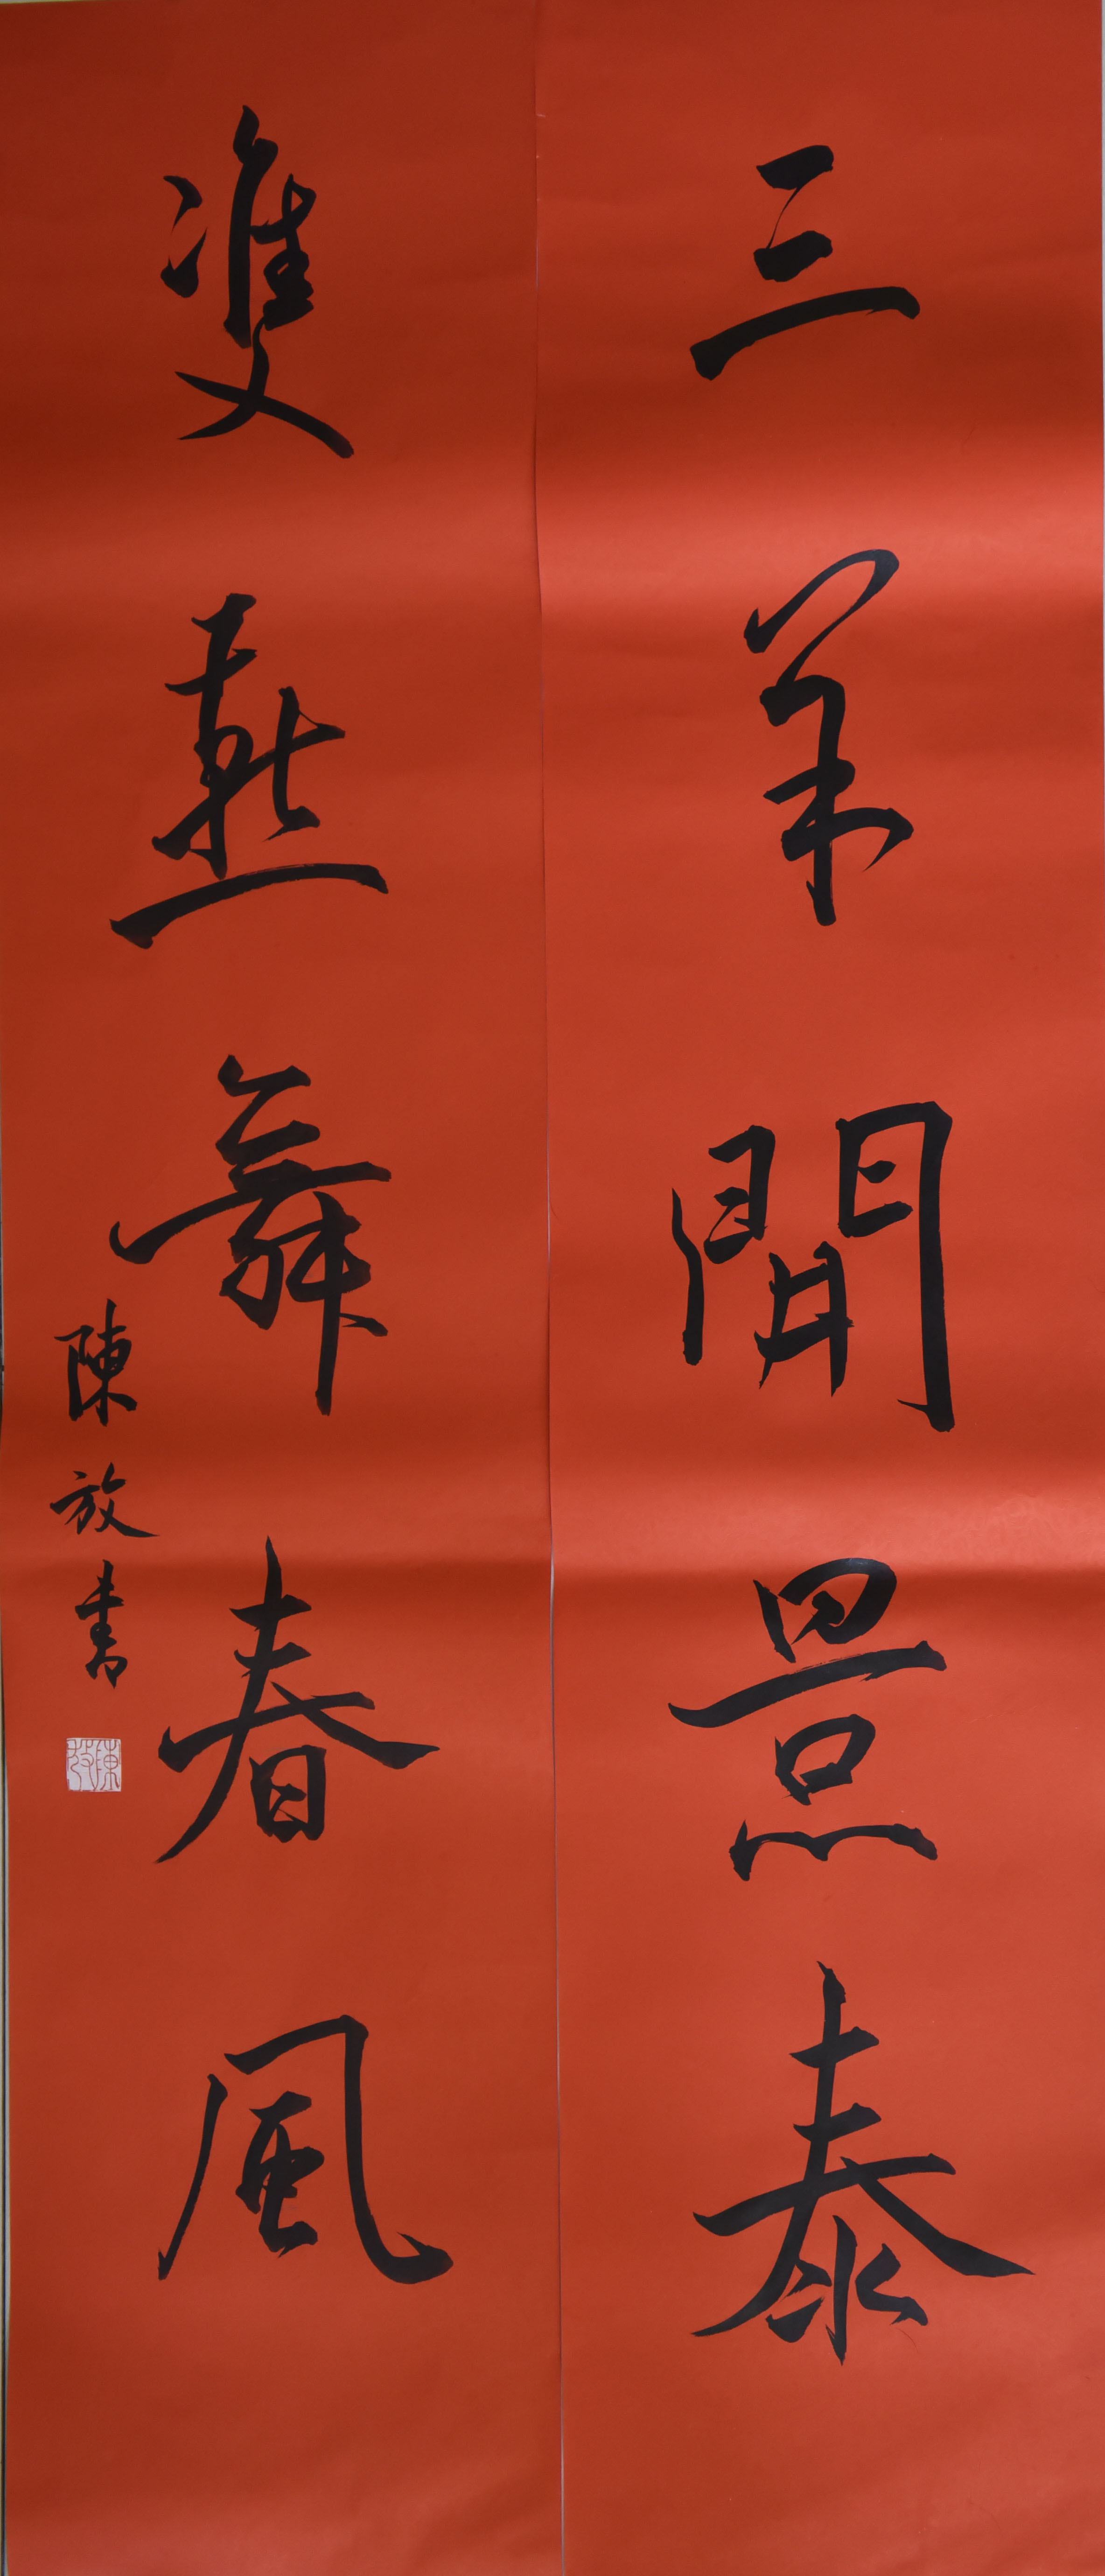 三羊開景泰
雙燕舞春風
陳放書
陳放